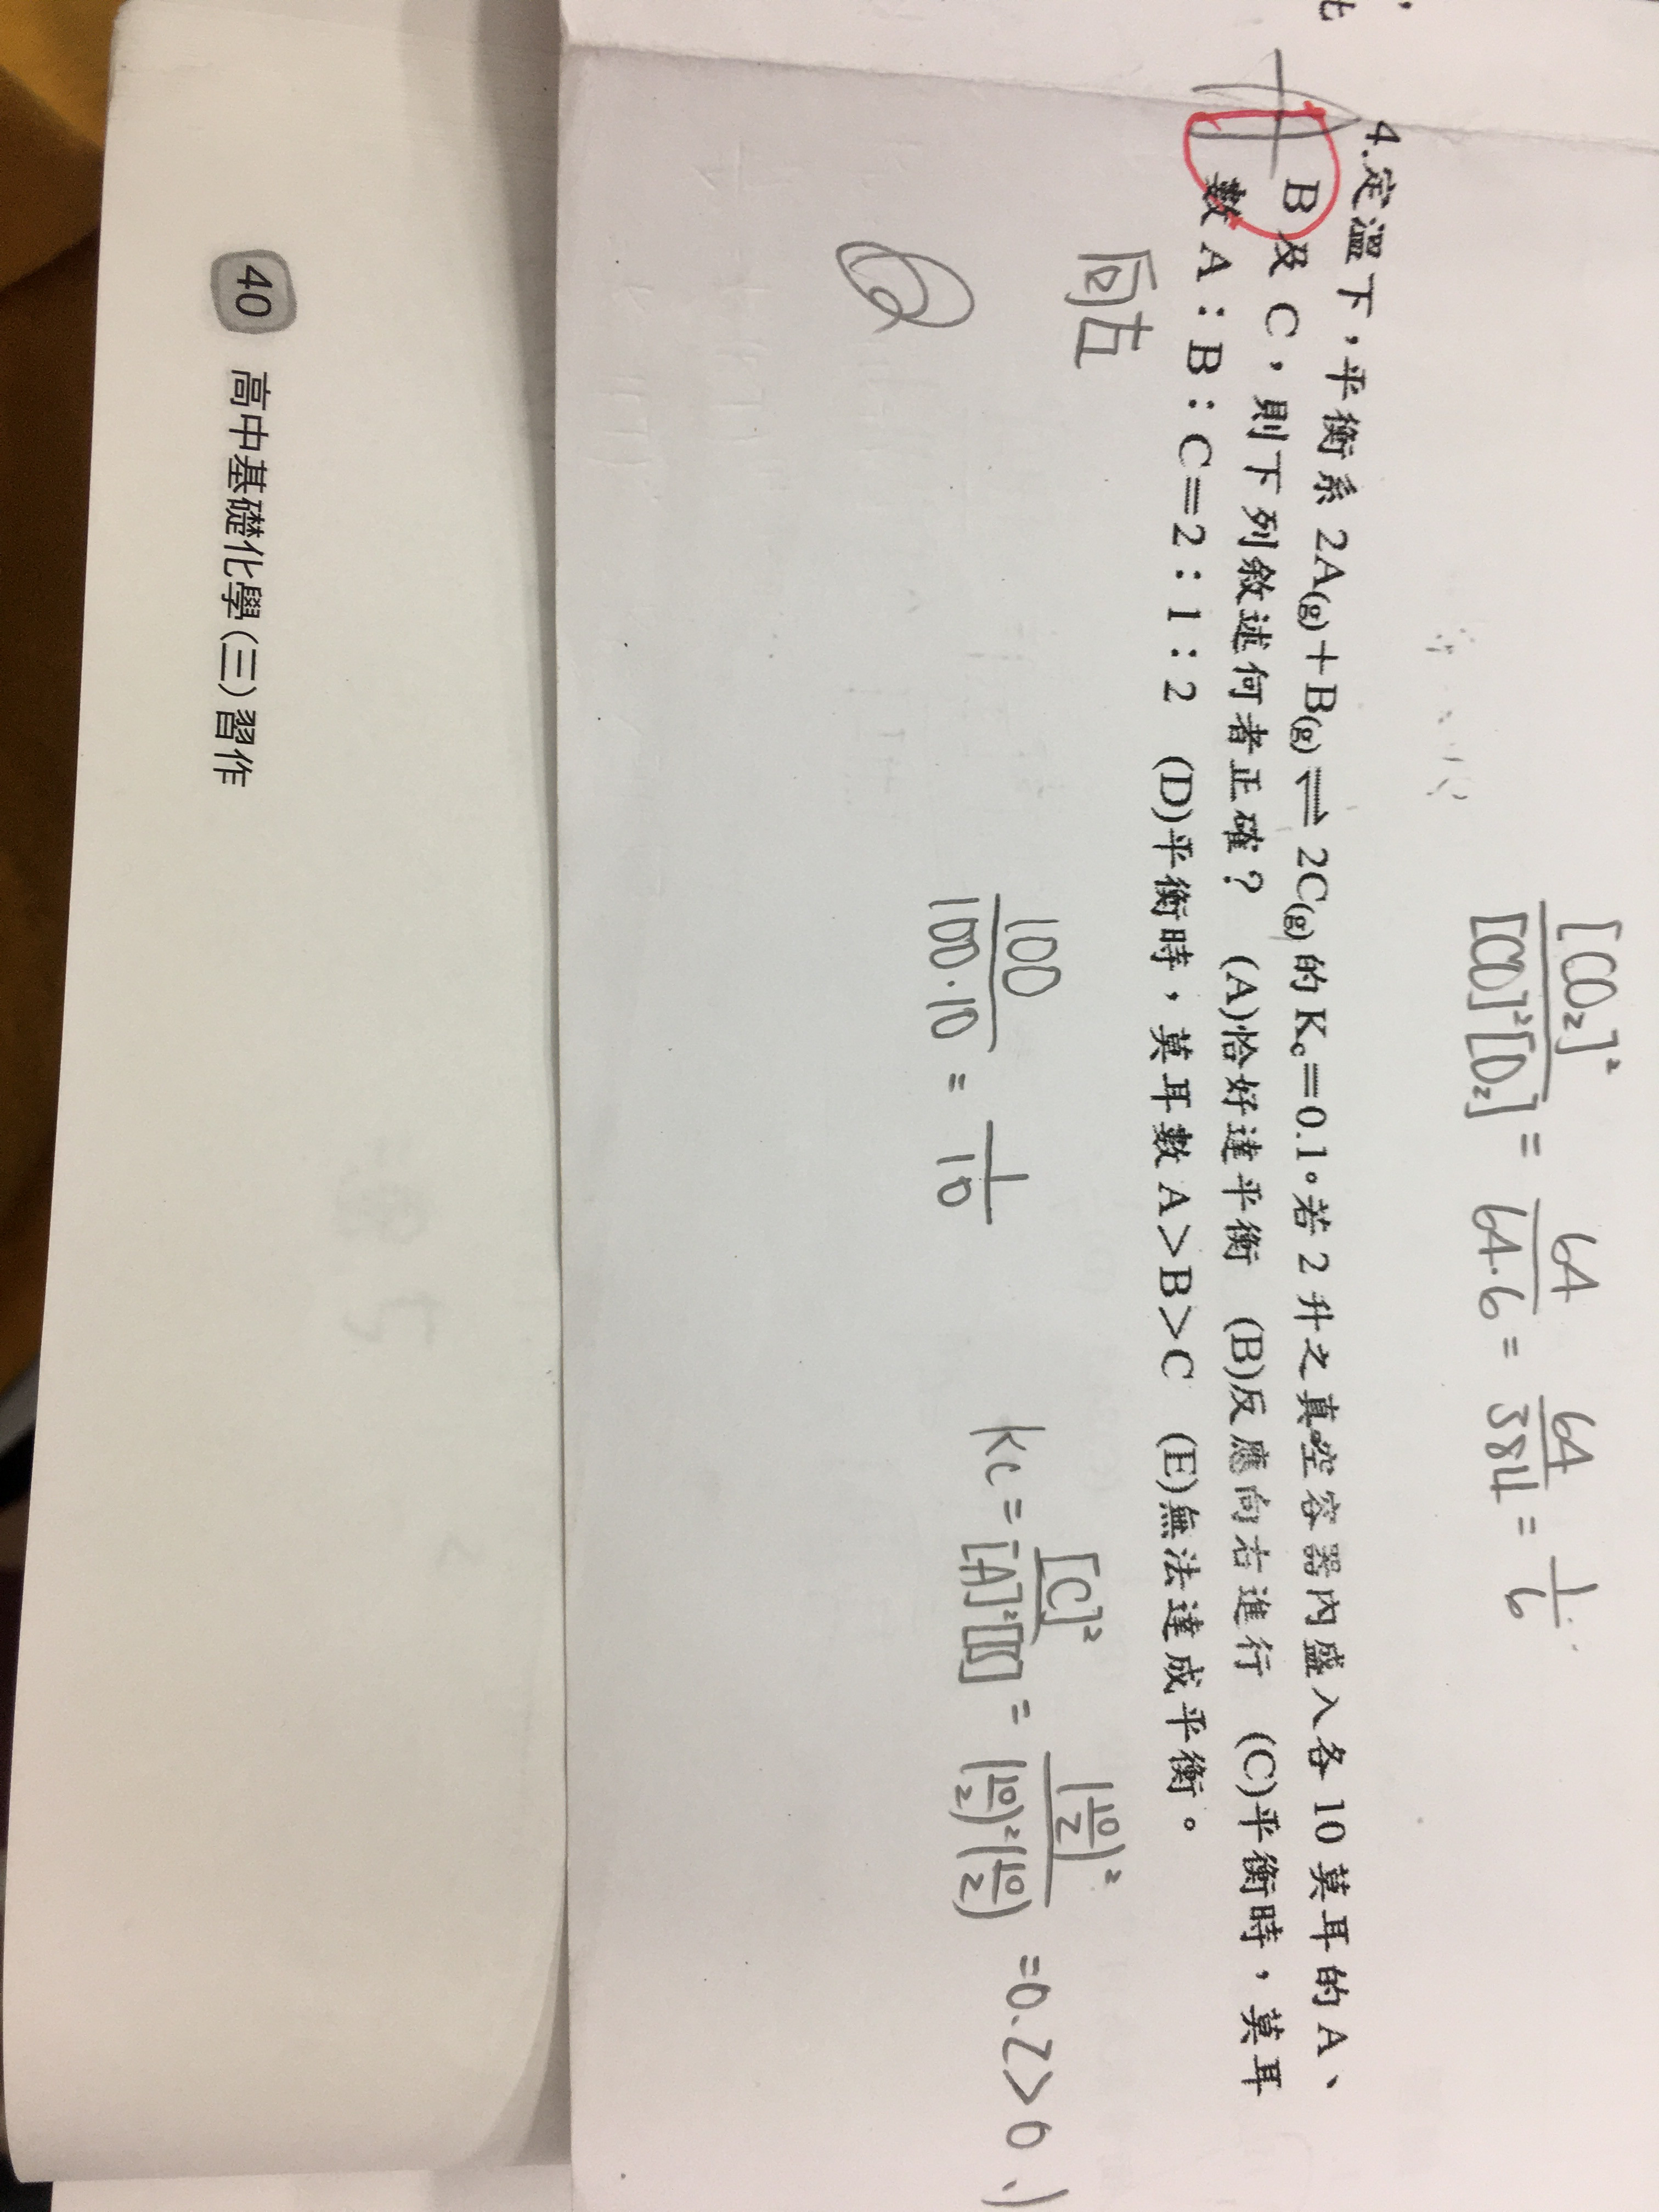 [CO₂]² / [CO]²[O₂] = 64 / 64·6 = 64 / 384 = 1 / 6
4.定溫下，平衡系 2A(g)＋B(g)⇌2C(g)的 Kc＝0.1。若 2 升之真空容器內盛入各 10 莫耳的 A、
B 及 C，則下列敘述何者正確？ (A)恰好達平衡 (B)反應向右進行 (C)平衡時，莫耳
數 A：B：C＝2：1：2 (D)平衡時，莫耳數 A＞B＞C (E)無法達成平衡。
向右
100 / 100·10 = 1 / 10
kc = [C]² / [A]²[B] = (10/2)² / (10/2)²(10/2) = 0.2>0.1
40 高中基礎化學(三)習作